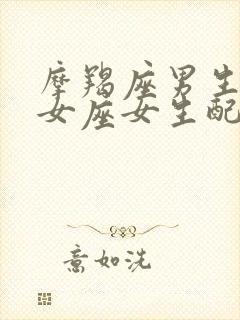 摩羯座男生
女座女生配
意如洗